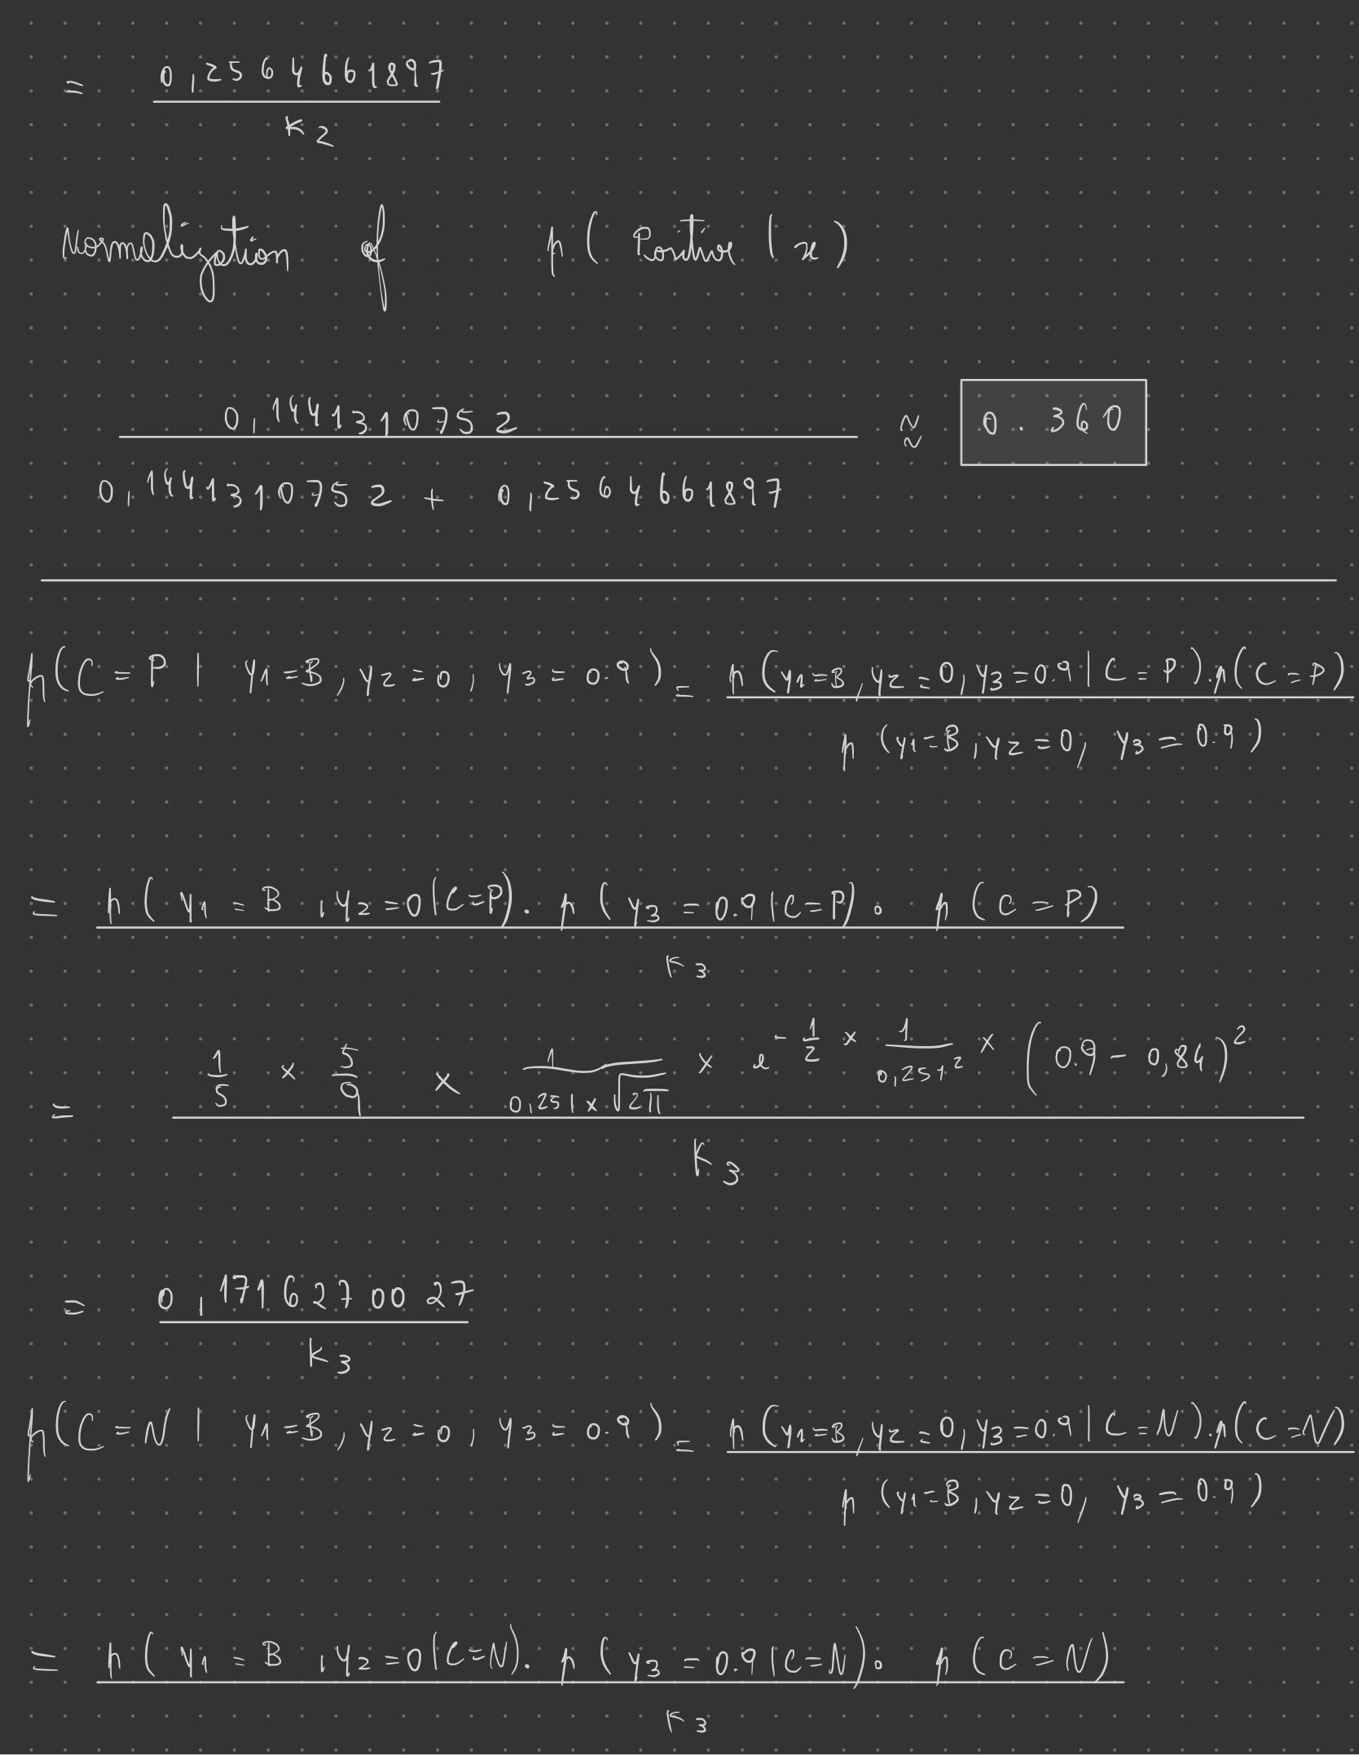 = 0,2564661897 / K2
Normalization of p( Positive | x )
0,1441310752 / 0,1441310752 + 0,2564661897 ≈ 0.360
p(C=P | y1=B, y2=0, y3=0.9) = p(y1=B, y2=0, y3=0.9 | C=P).p(C=P) / p(y1=B, y2=0, y3=0.9)
= p(y1=B, y2=0|C=P). p(y3=0.9|C=P). p(C=P) / K3
= 1/5 × 5/9 × 1/(0,251×√2π) × e^(-1/2 × 1/0,251² × (0.9-0,84)²) / K3
= 0,1716270027 / K3
p(C=N | y1=B, y2=0, y3=0.9) = p(y1=B, y2=0, y3=0.9 | C=N).p(C=N) / p(y1=B, y2=0, y3=0.9)
= p(y1=B, y2=0|C=N). p(y3=0.9|C=N). p(C=N) / K3